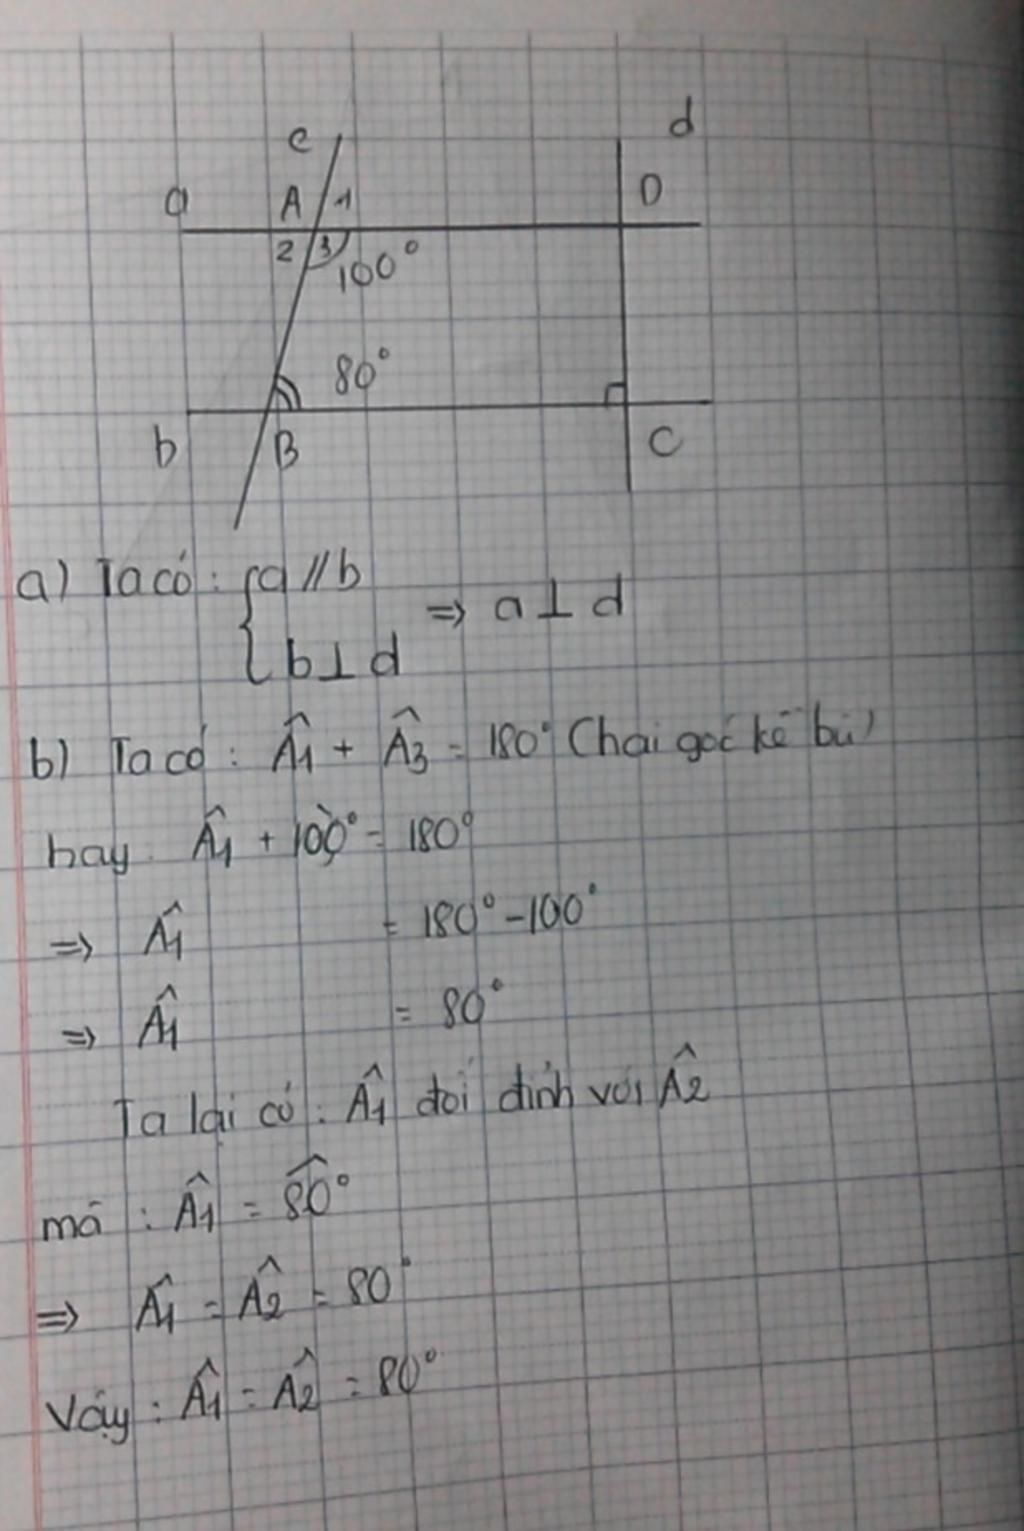 c
d
a
A
1
D
2
3
100°
80°
b
B
C
a) Ta có: { a // b
b ⊥ d
=> a ⊥ d
b) Ta có: Â1 + Â3 = 180° (hai góc kề bù)
hay Â1 + 100° = 180°
=> Â1 = 180° - 100°
=> Â1 = 80°
Ta lại có: Â1 đối đỉnh với Â2
mà : Â1 = 80°
=> Â1 = Â2 = 80°
Vậy : Â1 = Â2 = 80°